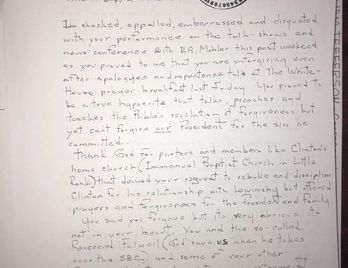 Im shocked, appalled, embarrassed and disgusted
with your performance on the talk-shows and
news conference with R.A. Mohler this past weekend
as you proved to me that you are unforgiving even
after apologies and repentance talk at The White-
House prayer breakfast last Friday. You proved to
be a true hypocrite that talks, preaches and
teaches the Bible's revelation of forgiveness but
yet can't forgive our President for the sin he
committed.
Thank God for pastors and members like Clinton's
home church (Immanuel Baptist Church in Little
Rock) that your request to rebuke and discipline
Clinton for his relationship with Lewinsky but offered
prayers and forgiveness for the President and family.
You said you forgave but its very obvious its
not in your heart. You and the so-called
Reverend Falwell (God save us when he takes
over the SBC) and some of your other